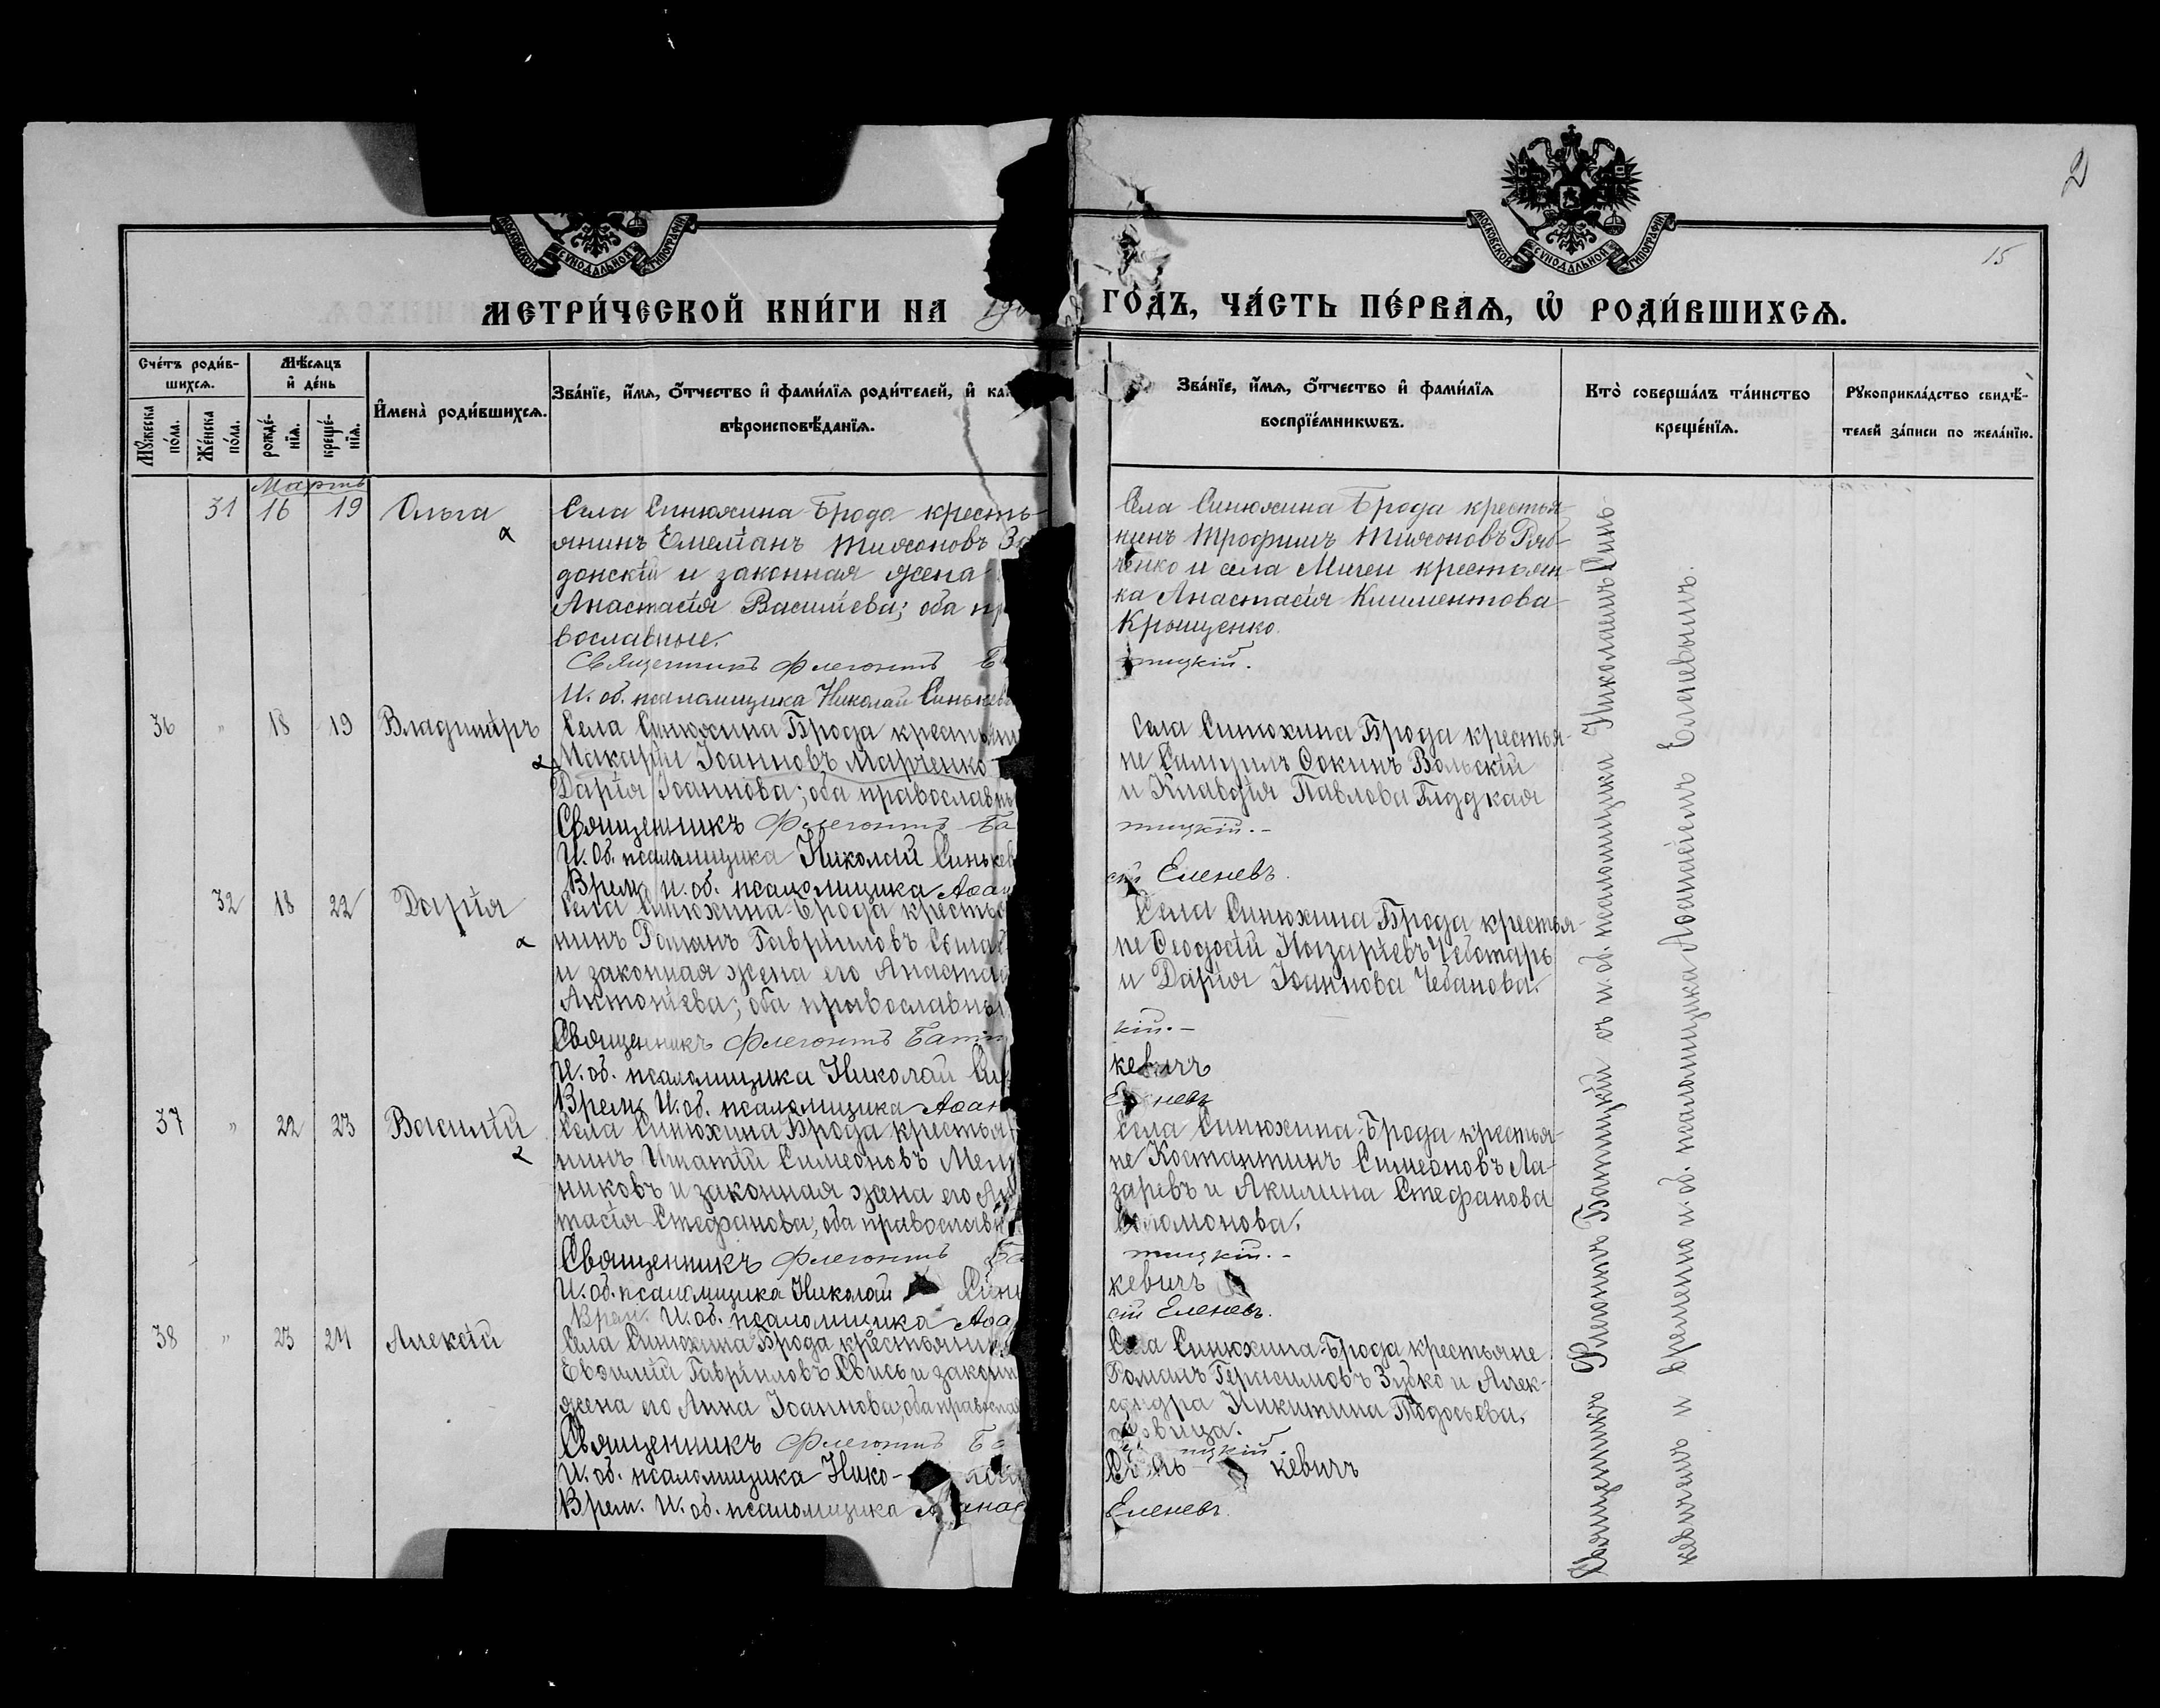 2
15
МОСКОВСКОЙ СѴНОДАЛЬНОЙ ТИПОГРАФІИ
МОСКОВСКОЙ СѴНОДАЛЬНОЙ ТИПОГРАФІИ
МЕТРИ́ЧЕСКОЙ КНИ́ГИ НА 190
ГО́ДЪ, ЧА́СТЬ ПЕ́РВАѦ, Ѡ҆ РОДИ́ВШИХСѦ.
Сче́тъ роди́в-
шихсѧ.
Мꙋжеска по́ла.
Же́нска по́ла.
Мѣ́сѧцъ
и҆ де́нь
рожде́-
нїѧ.
креще́-
нїѧ.
И҆мена̀ роди́вшихсѧ.
Зва́нїе, и҆́мѧ, ѻ҆́тчество и҆ фами́лїѧ роди́телей, и҆ ка
вѣроисповѣ́данїѧ.
Зва́нїе, и҆́мѧ, ѻ҆́тчество и҆ фами́лїѧ
воспрїе́мникѡвъ.
Кто̀ соверша́лъ та́инство
креще́нїѧ.
Рꙋкоприкла́дство свидѣ́-
телей за́писи по жела́нїю.
Мартъ
31 16 19 Ольга
Села Синюхина-Брода кресть-
янинъ Емеліанъ Тихоновъ За
донскій и законная жена
Анастасія Василіева; оба пр
вославные.
Священникъ Флегонтъ Б
И. об. псаломщика Николай Синькев
Села Синюхина Брода крестья-
нинъ Трофимъ Тихоновъ Ряб-
ченко и села Мигеи крестьян-
ка Анастасія Климентова
Крыщенко.
тицкій.
36 " 18 19 Владиміръ
Села Синюхина Брода крестьян
Макарій Іоанновъ Марченко
Дарія Іоаннова; оба православн
Священникъ Флегонтъ Ба
И. об. псаломщика Николай Синькев
Врем. и. об. псаломщика Аѳан
Села Синюхина Брода крестья-
не Самуилъ Ѳокинъ Вольскій
и Клавдія Павлова
тицкій.-
сій Еленевъ.
32 18 22 Дарія
Села Синюхина-Брода крестья
нинъ Романъ Гавріиловъ
и законная жена его Анастас
Антоніева; оба православны
Священникъ Флегонтъ Бати
И. об. псаломщика Николай Син
Врем. И. об. псаломщика Аѳан
Села Синюхина Брода крестья-
не Ѳеодосій Назаріевъ Чеботарь
и Дарія Іоаннова Чебанова.
кій.-
кевичъ
Еленевъ
37 " 22 23 Василій
Села Синюхина Брода крестья
нинъ Игнатій Симеоновъ Мель
никовъ и законная жена его Ан
тасія Стефанова; оба православн
Священникъ Флегонтъ Ба
И. об. псаломщика Николай Синь
Врем. И. об. псаломщика Аѳа
Села Синюхина-Брода крестья-
не Костантинъ Симеоновъ Ла-
заревъ и Акилина Стефанова
Соломонова.
тицкій.-
кевичъ
сій Еленевъ.
38 " 23 24 Алексій
Села Синюхина Брода крестьянин
Евѳимій Гавріиловъ Свись и законн
жена его Анна Іоаннова; оба правосла
Священникъ Флегонтъ Ба
И. об. псаломщика Нико- лай
Врем. И. об. псаломщика Аѳанас
Села Синюхина-Брода крестьяне
Романъ Герасимовъ Зубко и Алек-
сандра Никитина Тодосьева,
дѣвица.
тицкій.
Синь кевичъ
Еленевъ.
Священникъ Флегонтъ Батицкій съ и. об. псаломщика Николаемъ Синь-
кевичемъ и временно и. об. псаломщика Аѳанасіемъ Еленевымъ.